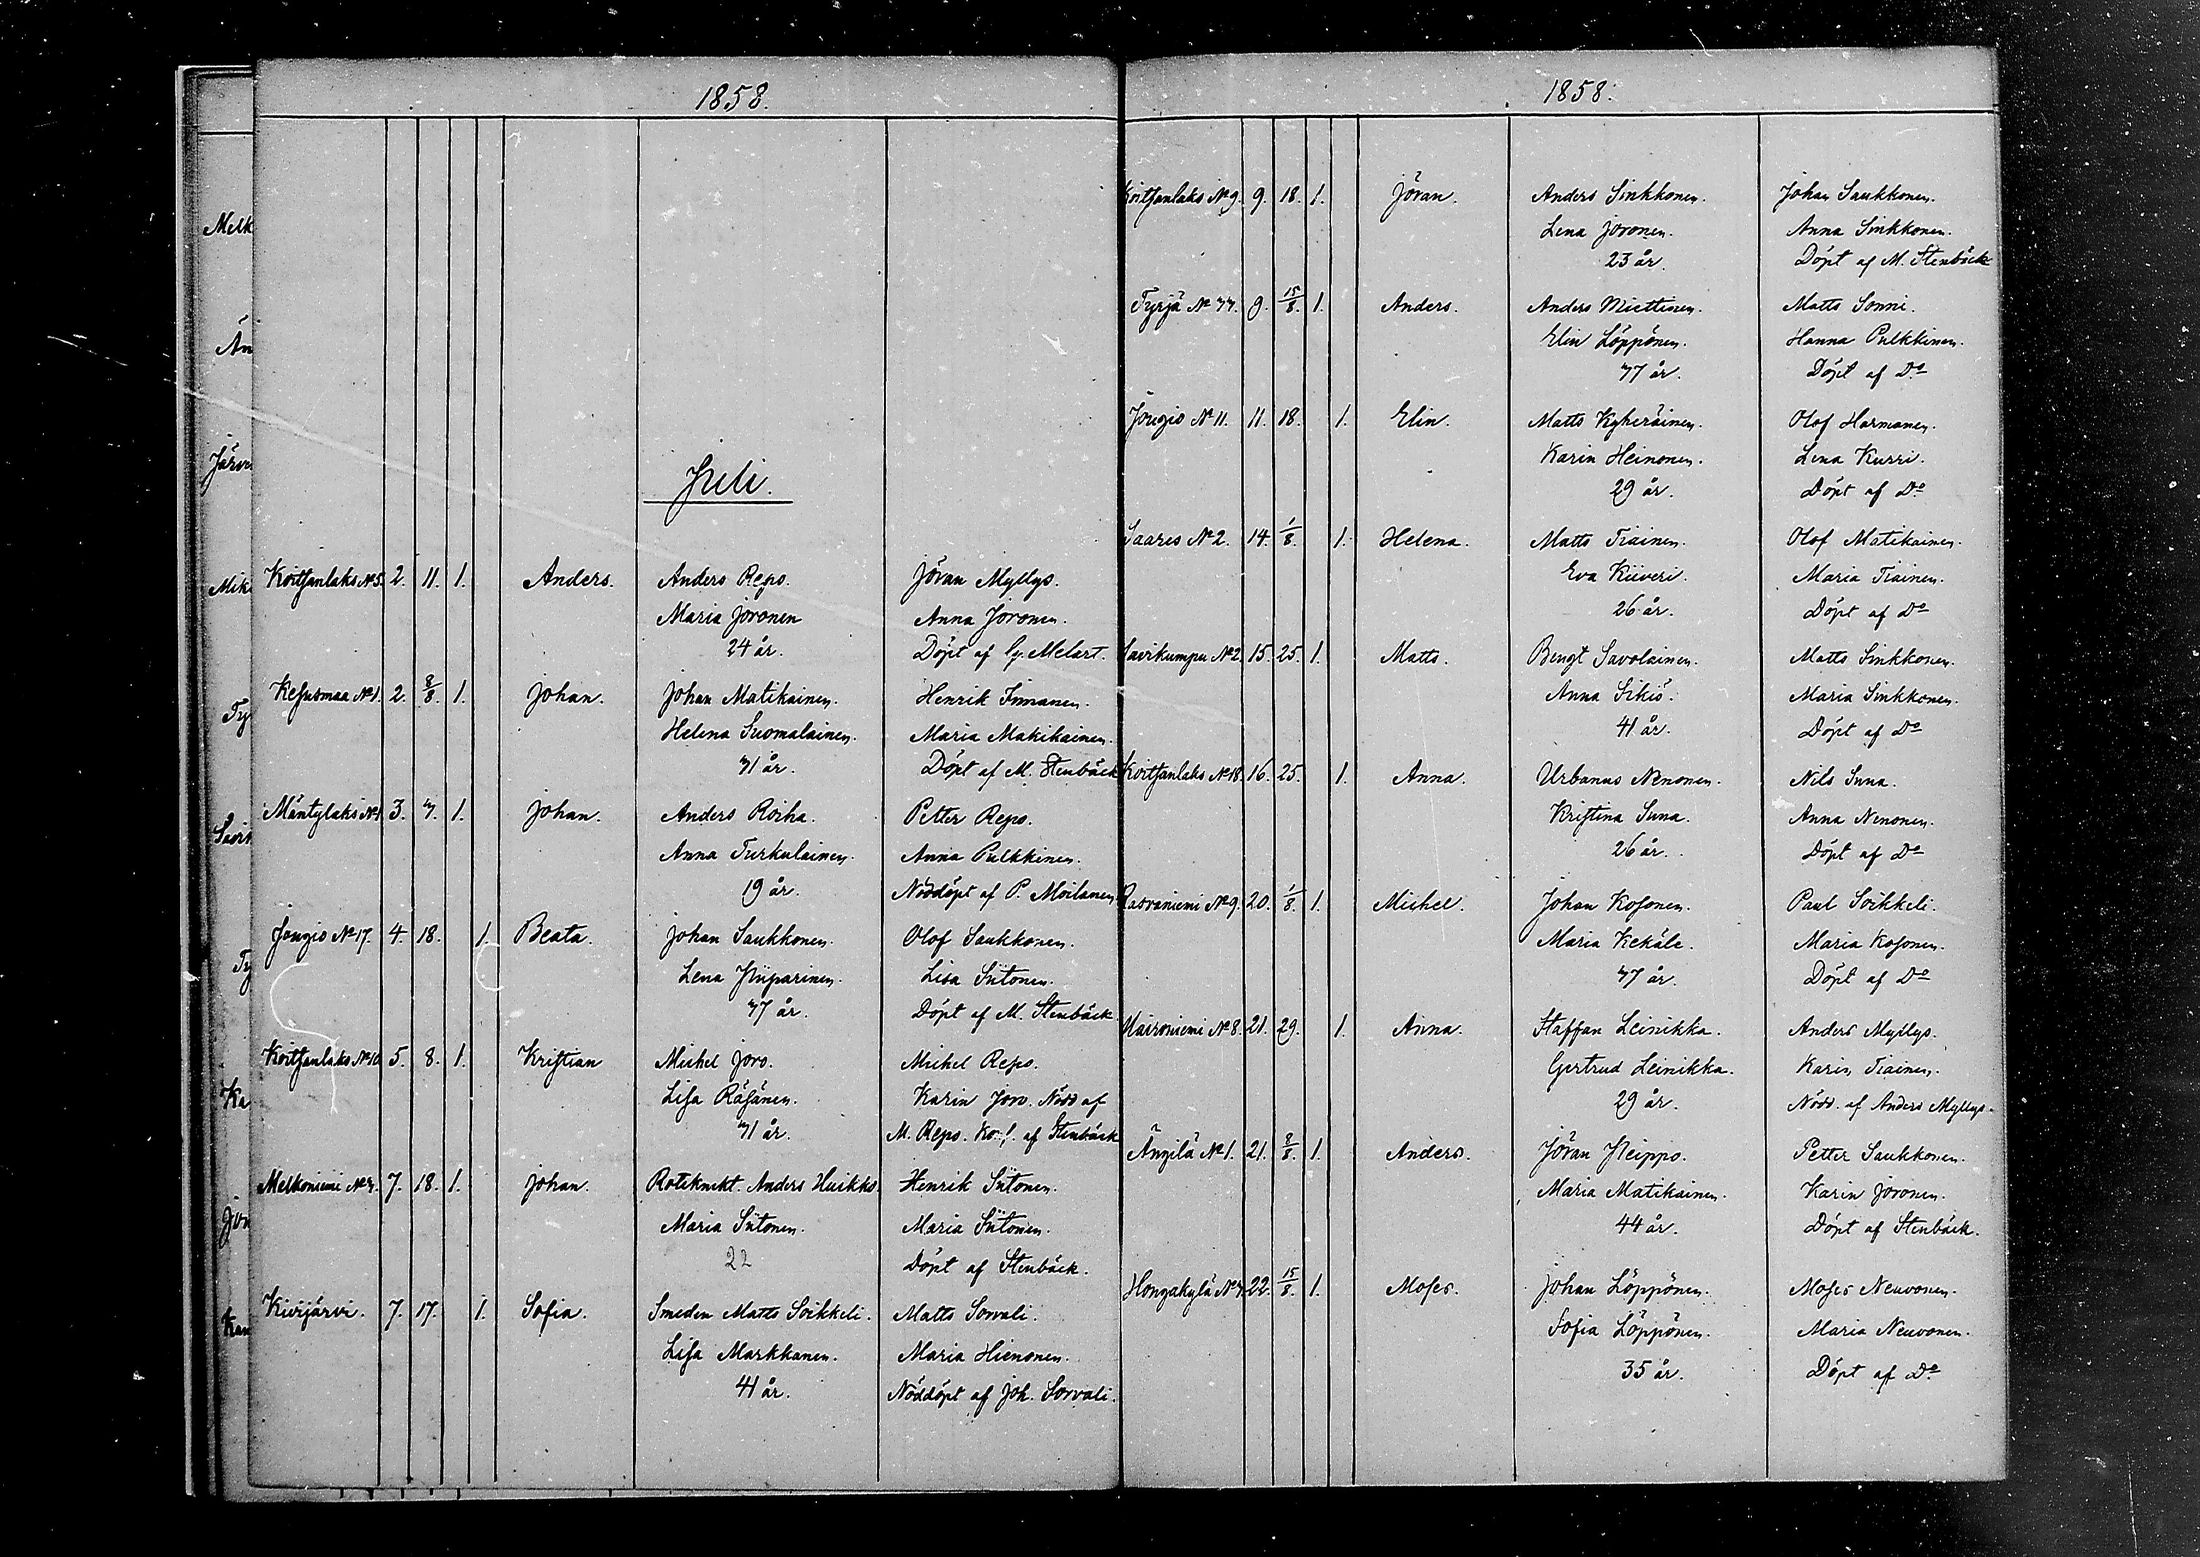 1858.
Juli.
Koitsanlaks No 5. 2. 11. 1. Anders. Anders Repo. Jöran Myllys.
Maria Joronen Anna Joronen.
24 år. Döpt af G. Melart.
Kesusmaa No 1. 2. 8/8. 1. Johan. Johan Matikainen. Henrik Immanen.
Helena Suomalainen. Maria Makikainen.
31 år. Döpt af M. Stenbäck
Mäntylaks No 1. 3. 7. 1. Johan. Anders Roiha. Petter Repo.
Anna Turkulainen. Anna Pulkkinen.
19 år. Nöddöpt af P. Moilanen
Jongio No 17. 4. 18. 1. Beata. Johan Saukkonen. Olof Saukkonen.
Lena Hüparinen. Lisa Siitonen.
37 år. Döpt af M. Stenbäck
Koitsanlaks No 10 5. 8. 1. Kristian Michel Joro. Michel Repo.
Lisa Räsänen. Karin Joro. Nödd af
31 år. M. Repo. Ko. f. af Stenbäck
Melkoniemi No 7. 7. 18. 1. Johan. Roteknekt. Anders Huikko. Henrik Siitonen.
Maria Siitonen. Maria Siitonen.
22 Döpt af Stenbäck.
Kivijärvi. 7. 17. 1. Sofia. Smeden Matts Soikkeli. Matts Sorvali.
Lisa Markkanen. Maria Hienonen.
41 år. Nöddöpt af Joh. Sorvali.
1858.
Koitsanlaks No 9. 9. 18. 1. Jöran. Anders Sinkkonen. Johan Saukkonen.
Lena Joronen. Anna Sinkkonen.
23 år. Döpt af M. Stenbäck
Tyrjä No 37. 9. 15/8. 1. Anders. Anders Miettinen. Matts Sonni.
Elin Löppönen. Hanna Pulkkinen.
37 år. Döpt af Do
Jongio No 11. 11. 18. 1. Elin. Matts Kyheräinen. Olof Harmanen.
Karin Heinonen. Lena Kurri.
29 år. Döpt af Do
Saares No 2. 14. 1/8. 1. Helena. Matts Tiainen. Olof Matikainen.
Eva Kiiveri. Maria Tiainen.
26 år. Döpt af Do
Savikumpu No 2. 15. 25. 1. Matts. Bengt Savolainen. Matts Sinkkonen.
Anna Sikiö. Maria Sinkkonen.
41 år. Döpt af Do
Koitsanlaks No 18. 16. 25. 1. Anna. Urbanus Nenonen. Nils Suna.
Kristina Suna. Anna Nenonen.
26 år. Döpt af Do
Rasvaniemi No 9. 20. 1/8. 1. Michel. Johan Kosonen. Paul Soikkeli.
Maria Kekäle. Maria Kosonen.
37 år. Döpt af Do
Maironiemi No 8. 21. 29. 1. Anna. Staffan Leinikka. Anders Myllys.
Gertrud Leinikka. Karin Tiainen.
29 år. Nödd. af Anders Myllys.
Ängilä No 1. 21. 8/8. 1. Anders. Jöran Heippo. Petter Saukkonen.
Maria Matikainen. Karin Joronen.
44 år. Döpt af Stenbäck.
Hongakylä No 7. 22. 15/8. 1. Moses. Johan Löppönen. Moses Neuvonen.
Sofia Löppönen. Maria Neuvonen.
35 år. Döpt af Do